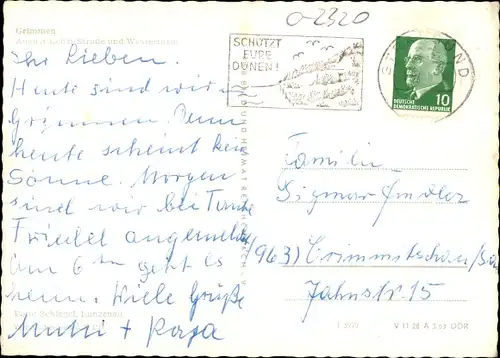 Grimmen
August-Bebel-Straße und Wasserturm
Ihr Lieben.
Heute sind wir in
Grimmen. Denn
heute scheint keine
Sonne. Morgen
sind wir bei Tante
Friedel angemeldet
am 6ten geht es
heim. Viele Grüße
Mutti + Papa
Foto: Schlegel, Lunzenau
BILD UND HEIMAT REICHENBACH
0-2320
SCHÜTZT
EURE
DÜNEN!
STRALSUND
10
DEUTSCHE
DEMOKRATISCHE REPUBLIK
Familie
Sigmar
(963) Crimmitschau/Sa
Jahnstr. 15
V 11 28 A 3/63 DDR